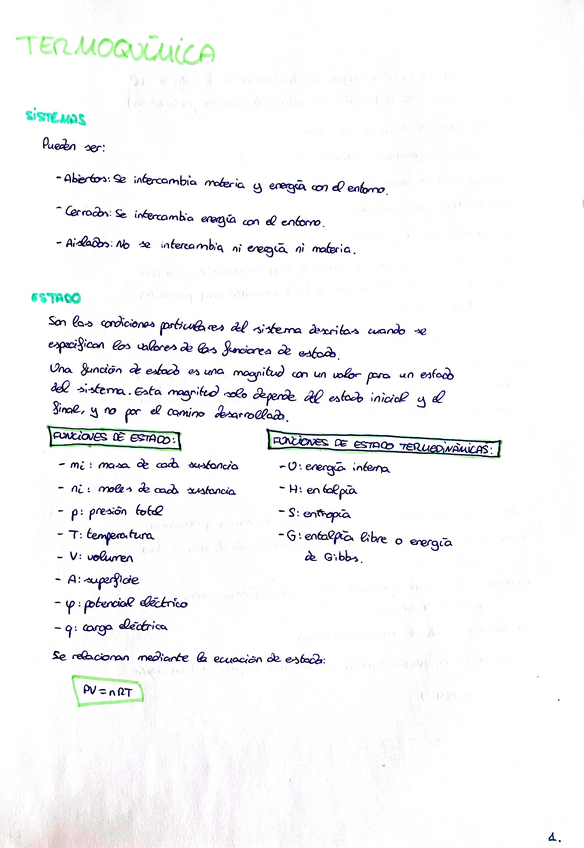 TERMOQUÍMICA
SISTEMAS
Pueden ser:
- Abiertos: Se intercambia materia y energía con el entorno.
- Cerrados: Se intercambia energía con el entorno.
- Aislados: No se intercambia ni energía ni materia.
ESTADO
Son las condiciones particulares del sistema descritas cuando se
especifican los valores de las funciones de estado.
Una función de estado es una magnitud con un valor para un estado
del sistema. Esta magnitud solo depende del estado inicial y el
final, y no por el camino desarrollado.
FUNCIONES DE ESTADO:
- mi: masa de cada sustancia
- ni: moles de cada sustancia
- p: presión total
- T: temperatura
- V: volumen
- A: superficie
- φ: potencial eléctrico
- q: carga eléctrica
FUNCIONES DE ESTADO TERMODINÁMICAS:
- U: energía interna
- H: entalpía
- S: entropía
- G: entalpía libre o energía
de Gibbs.
Se relacionan mediante la ecuación de estado:
PV = nRT
1.